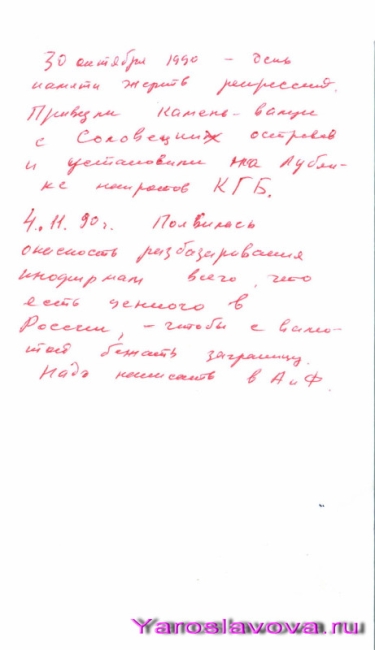 30 октября 1990 – день
памяти жертв репрессий.
Привезли камень-валун
с Соловецких островов
и установили на Лубян-
ке напротив КГБ.
4.11.90г. Появилась
опасность разбазаривания
инофирмам всего, что
есть ценного в
России, – чтобы с валю-
той бежать заграницу.
Надо написать в АиФ.
Yaroslavova.ru